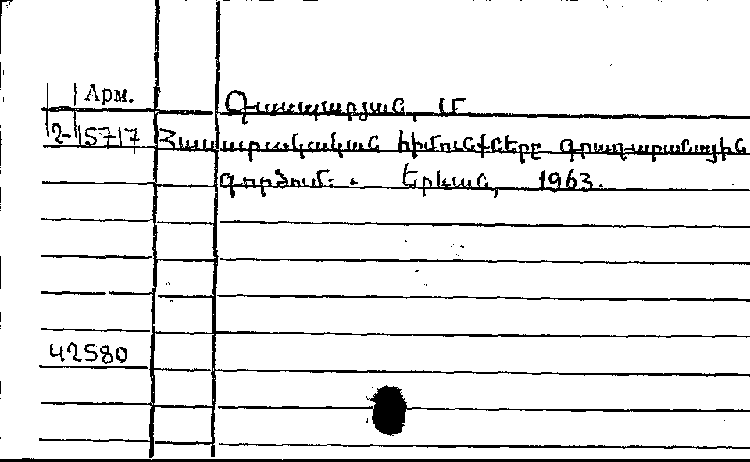 Арм. Գասպարյան, Մ
2-15717 Հասարակական հիմունքները գրադարանային
գործում. - Երևան, 1963.
42580